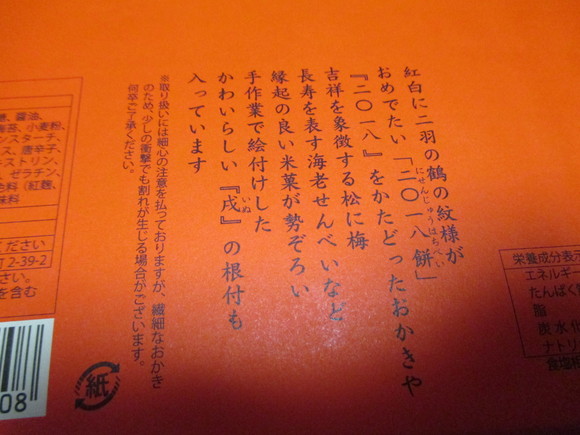 紅白に二羽の鶴の紋様が
おめでたい「二〇一八餅」
にせんじゅうはちべい
『二〇一八』をかたどったおかきや
吉祥を象徴する松に梅
長寿を表す海老せんべいなど
縁起の良い米菓が勢ぞろい
手作業で絵付けした
かわいらしい『戌』の根付も
いぬ
入っています
※取り扱いには細心の注意を払っておりますが、繊細なおかき
のため、少しの衝撃でも割れが生じる場合がございます。
何卒ご了承ください。
紙
栄養成分表示
エネルギ
たんぱく
脂
炭水
ナトリ
食塩
醤油、
海苔、小麦粉、
ンスターチ
ス、唐辛子、
キストリン
、ゼラチン、
料（紅麹、
味料
ください
町2-39-2
さい。
を含む
08